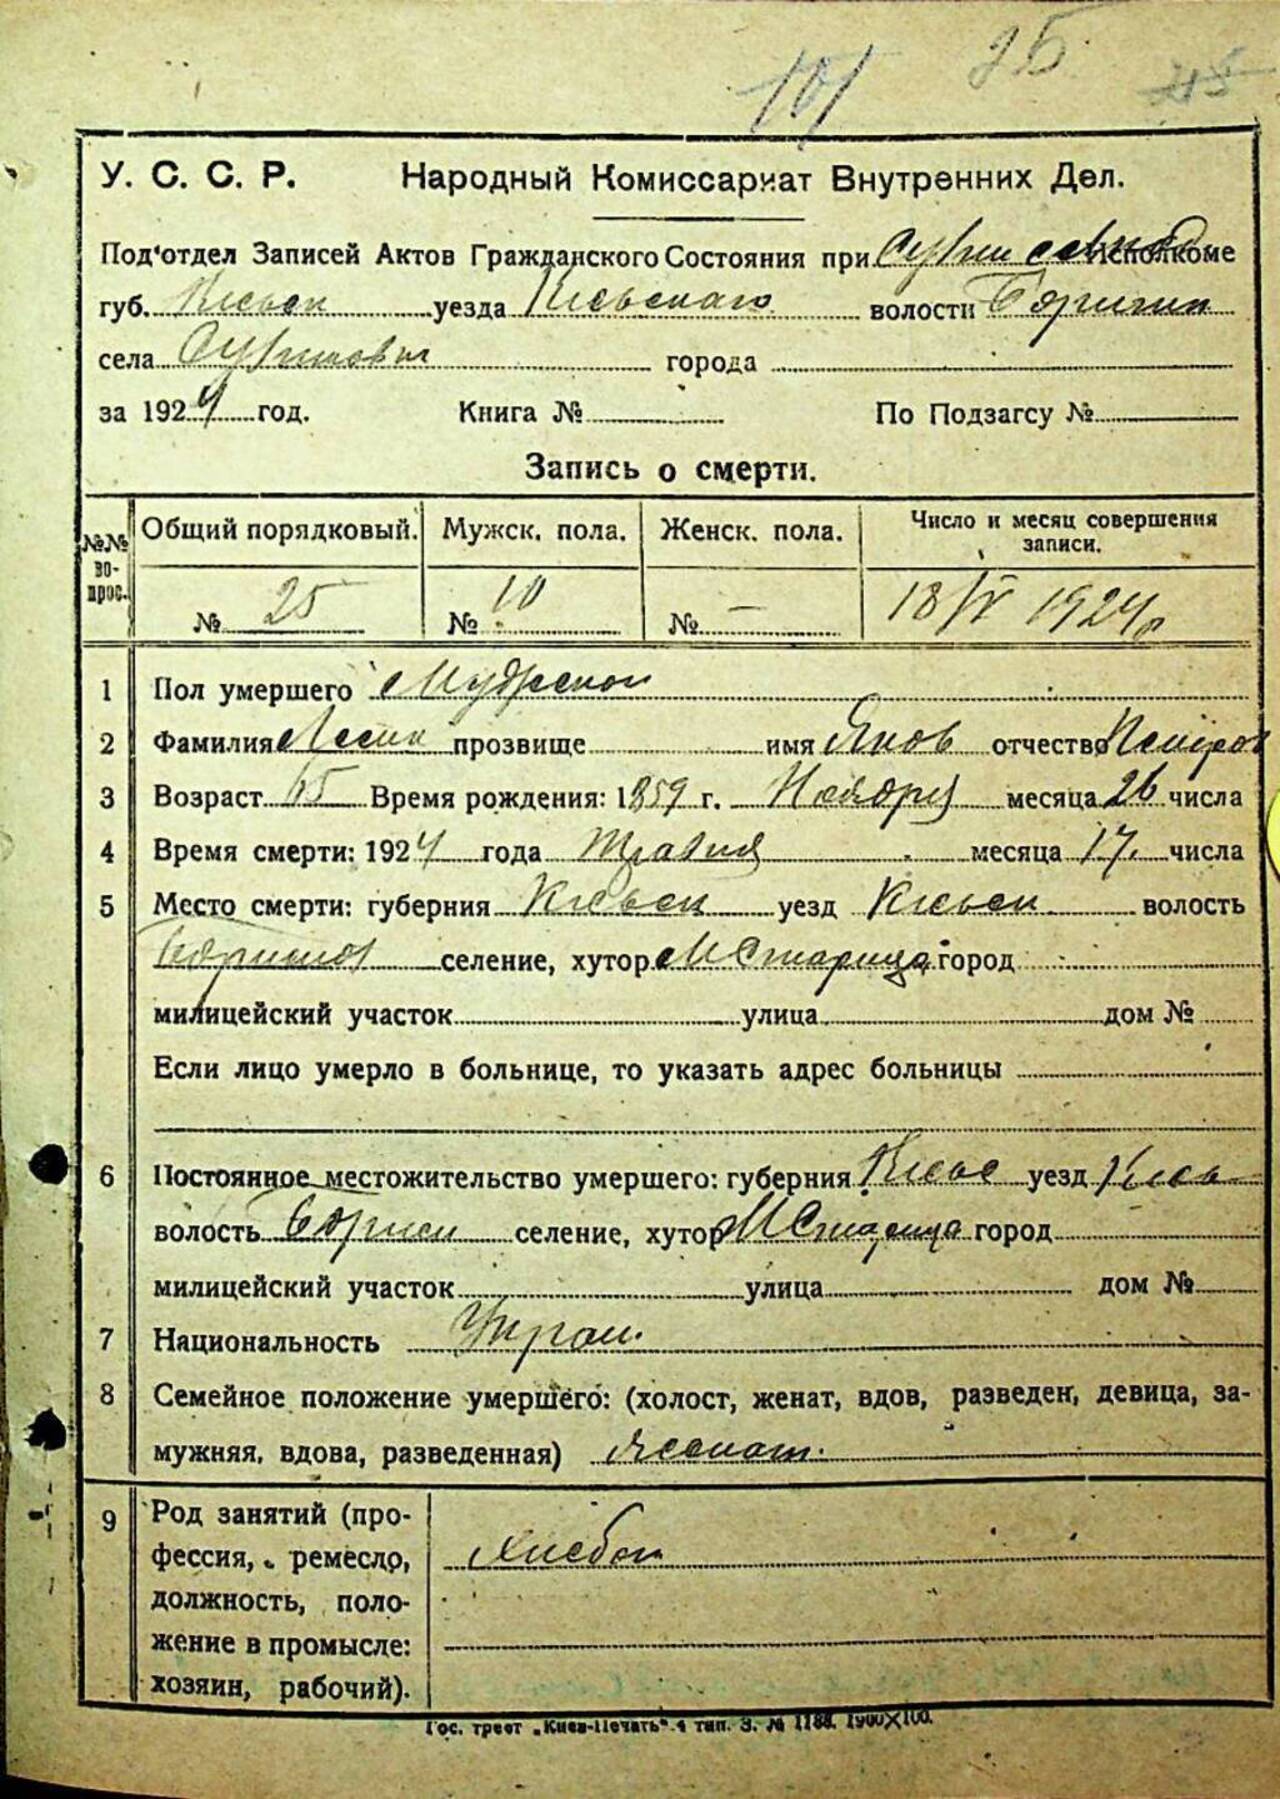 101 25 245
У. С. С. Р. Народный Комиссариат Внутренних Дел.
Под'отдел Записей Актов Гражданского Состояния при Исполкоме
губ. Киевск уезда Киевскаго волости
села города
за 1924 год. Книга № По Подзагсу №
Запись о смерти.
№№ вопрос. Общий порядковый. Мужск. пола. Женск. пола. Число и месяц совершения записи.
№ 25 № 10 № — 18/V 1924 г
1 Пол умершего
2 Фамилия прозвище имя Яков отчество Петров
3 Возраст 65 Время рождения: 1859 г. Ноября месяца 26 числа
4 Время смерти: 1924 года Травня месяца 17. числа
5 Место смерти: губерния Киевск уезд Киевск волость
селение, хутор М Старица город
милицейский участок улица дом №
Если лицо умерло в больнице, то указать адрес больницы
6 Постоянное местожительство умершего: губерния Киевс уезд Киев
волость селение, хутор М Старица город
милицейский участок улица дом №
7 Национальность Украи.
8 Семейное положение умершего: (холост, женат, вдов, разведен, девица, за-
мужняя, вдова, разведенная) женат.
9 Род занятий (про-
фессия, ремесло, Хлебоп
должность, поло-
жение в промысле:
хозяин, рабочий).
Гос. трест „Киев-Печать“ 4 тип. З. № 1188. 1900×100.